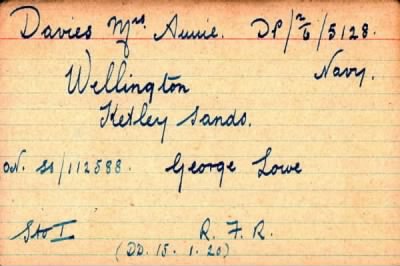 Davies Mrs Annie. DP/2/6/5128.
Navy.
Wellington
Ketley Sands.
ON. SS/112588. George Lowe
Sto I R. F. R.
(DD. 15. 1. 20)